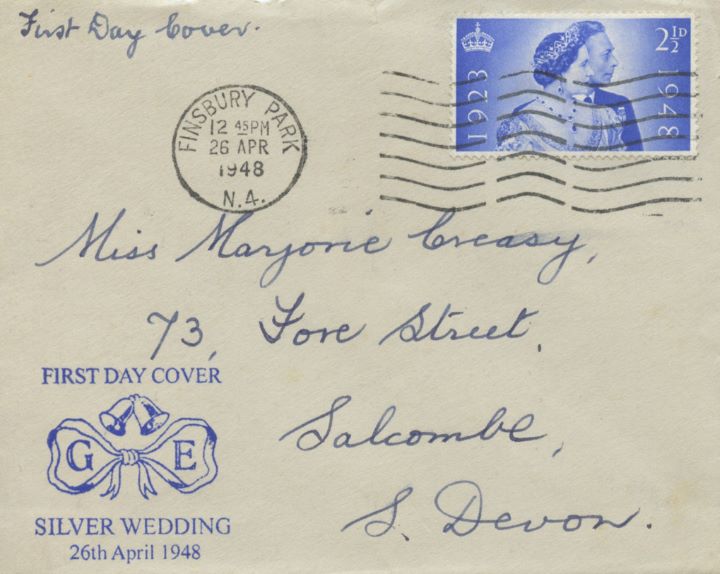 First Day Cover.
2½D
1923
1948
FINSBURY PARK
12 45PM
26 APR
1948
N.4.
Miss Marjorie Creasy,
73, Fore Street,
Salcombe,
S. Devon.
FIRST DAY COVER
G E
SILVER WEDDING
26th April 1948